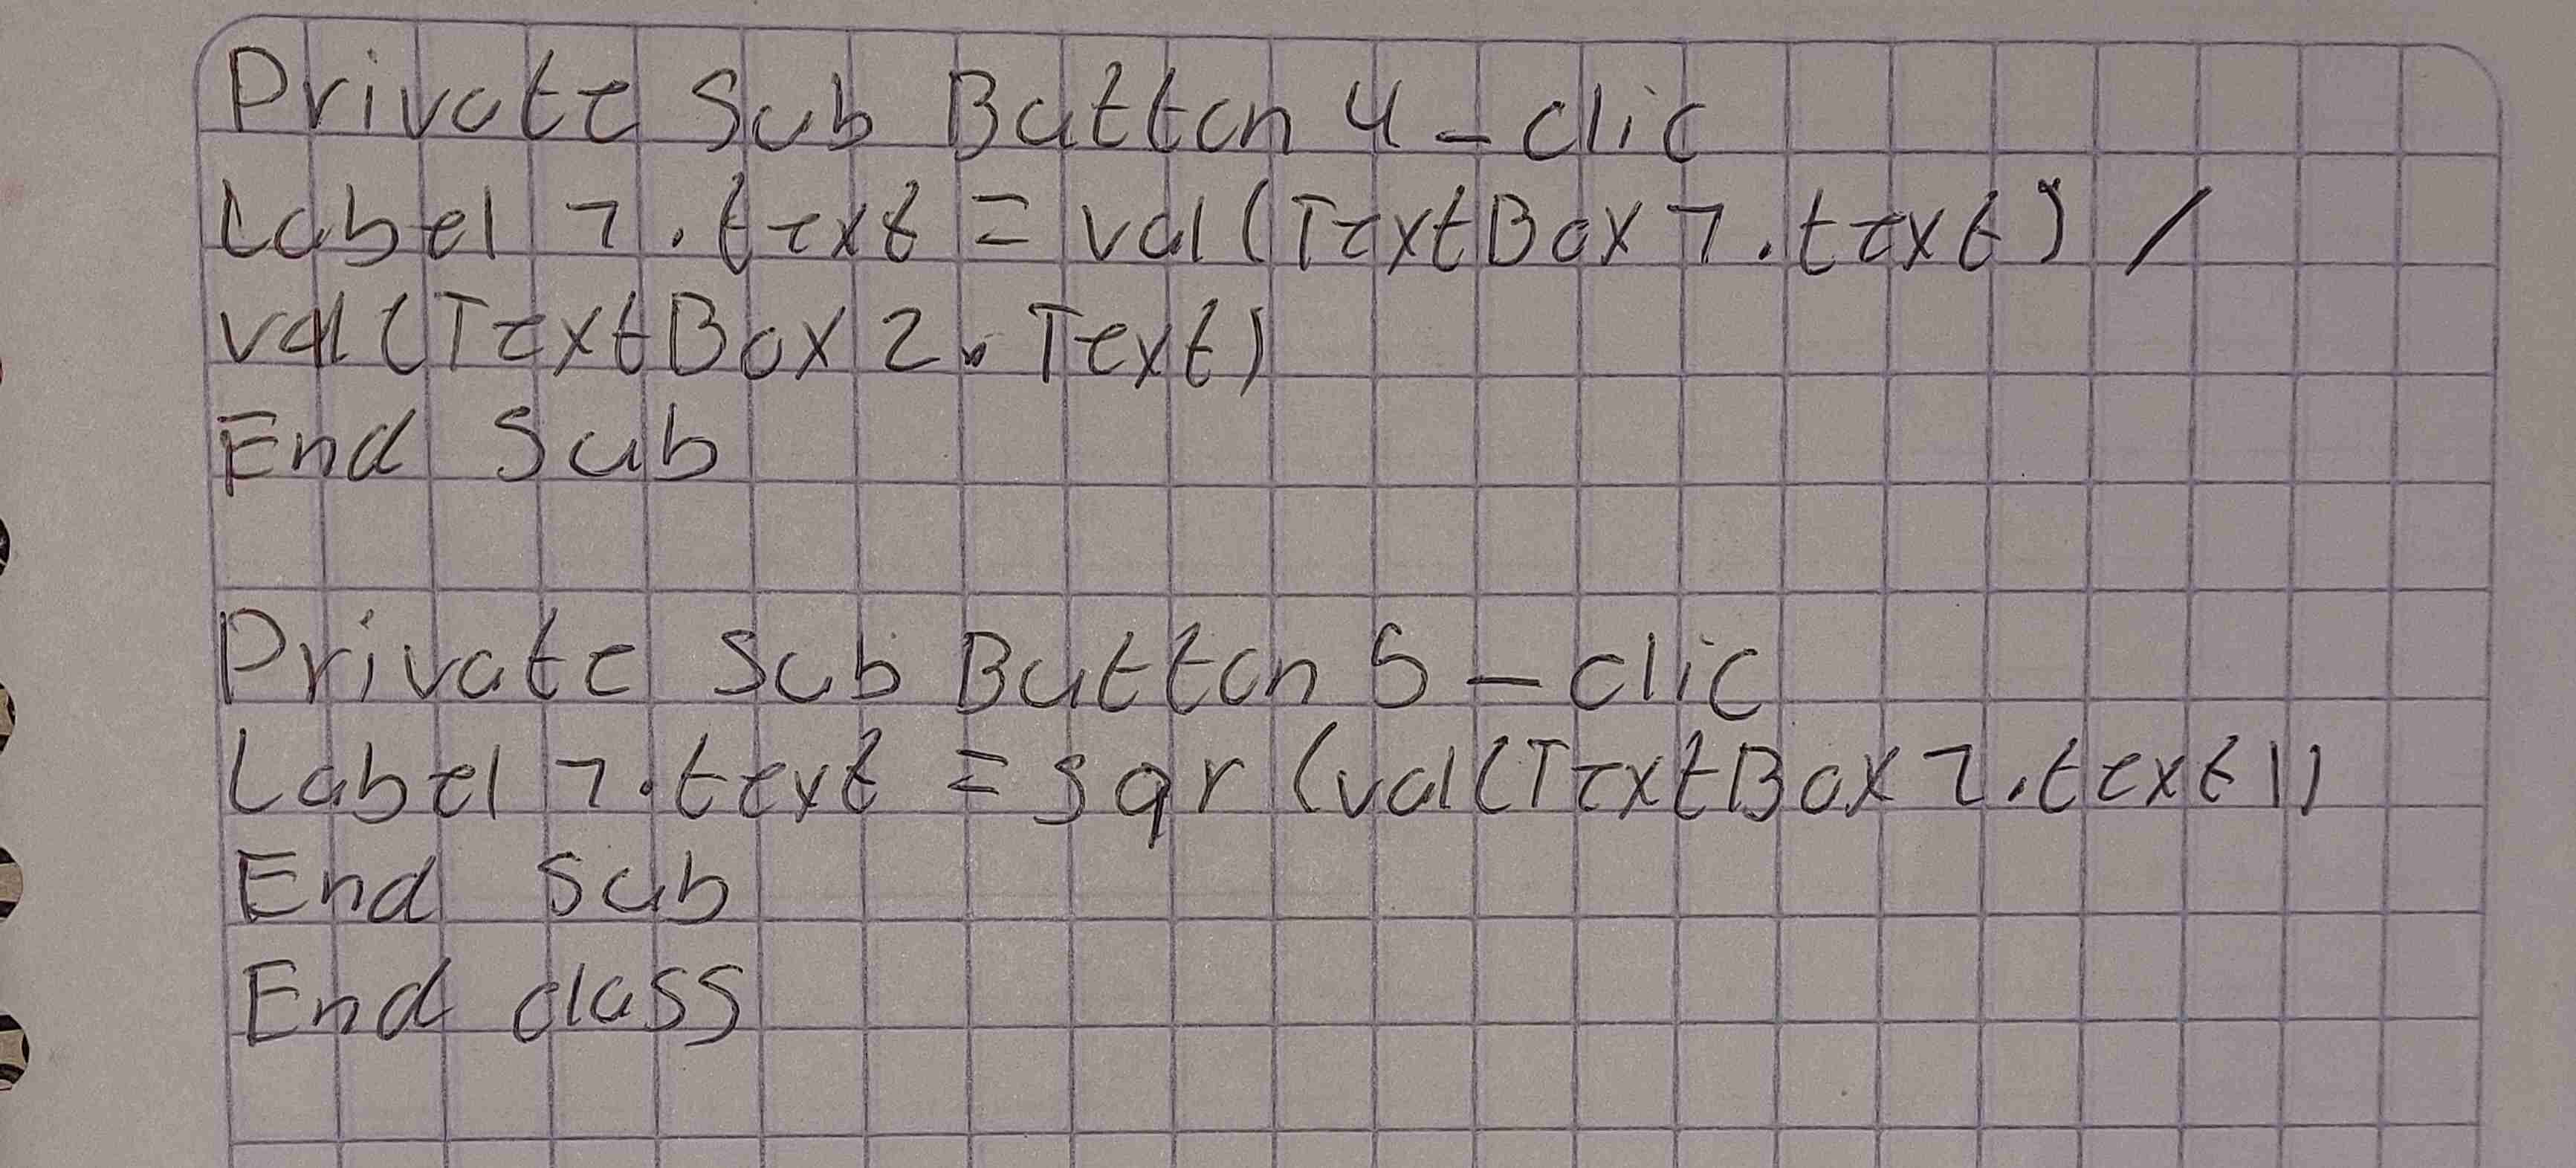 Private Sub Button 4 - clic
Label 1.text = val(TextBox 1.text) /
val(TextBox 2. Text)
End Sub
Private Sub Button 5 - clic
Label 1.text = sqr (val(TextBox 1.text))
End Sub
End class